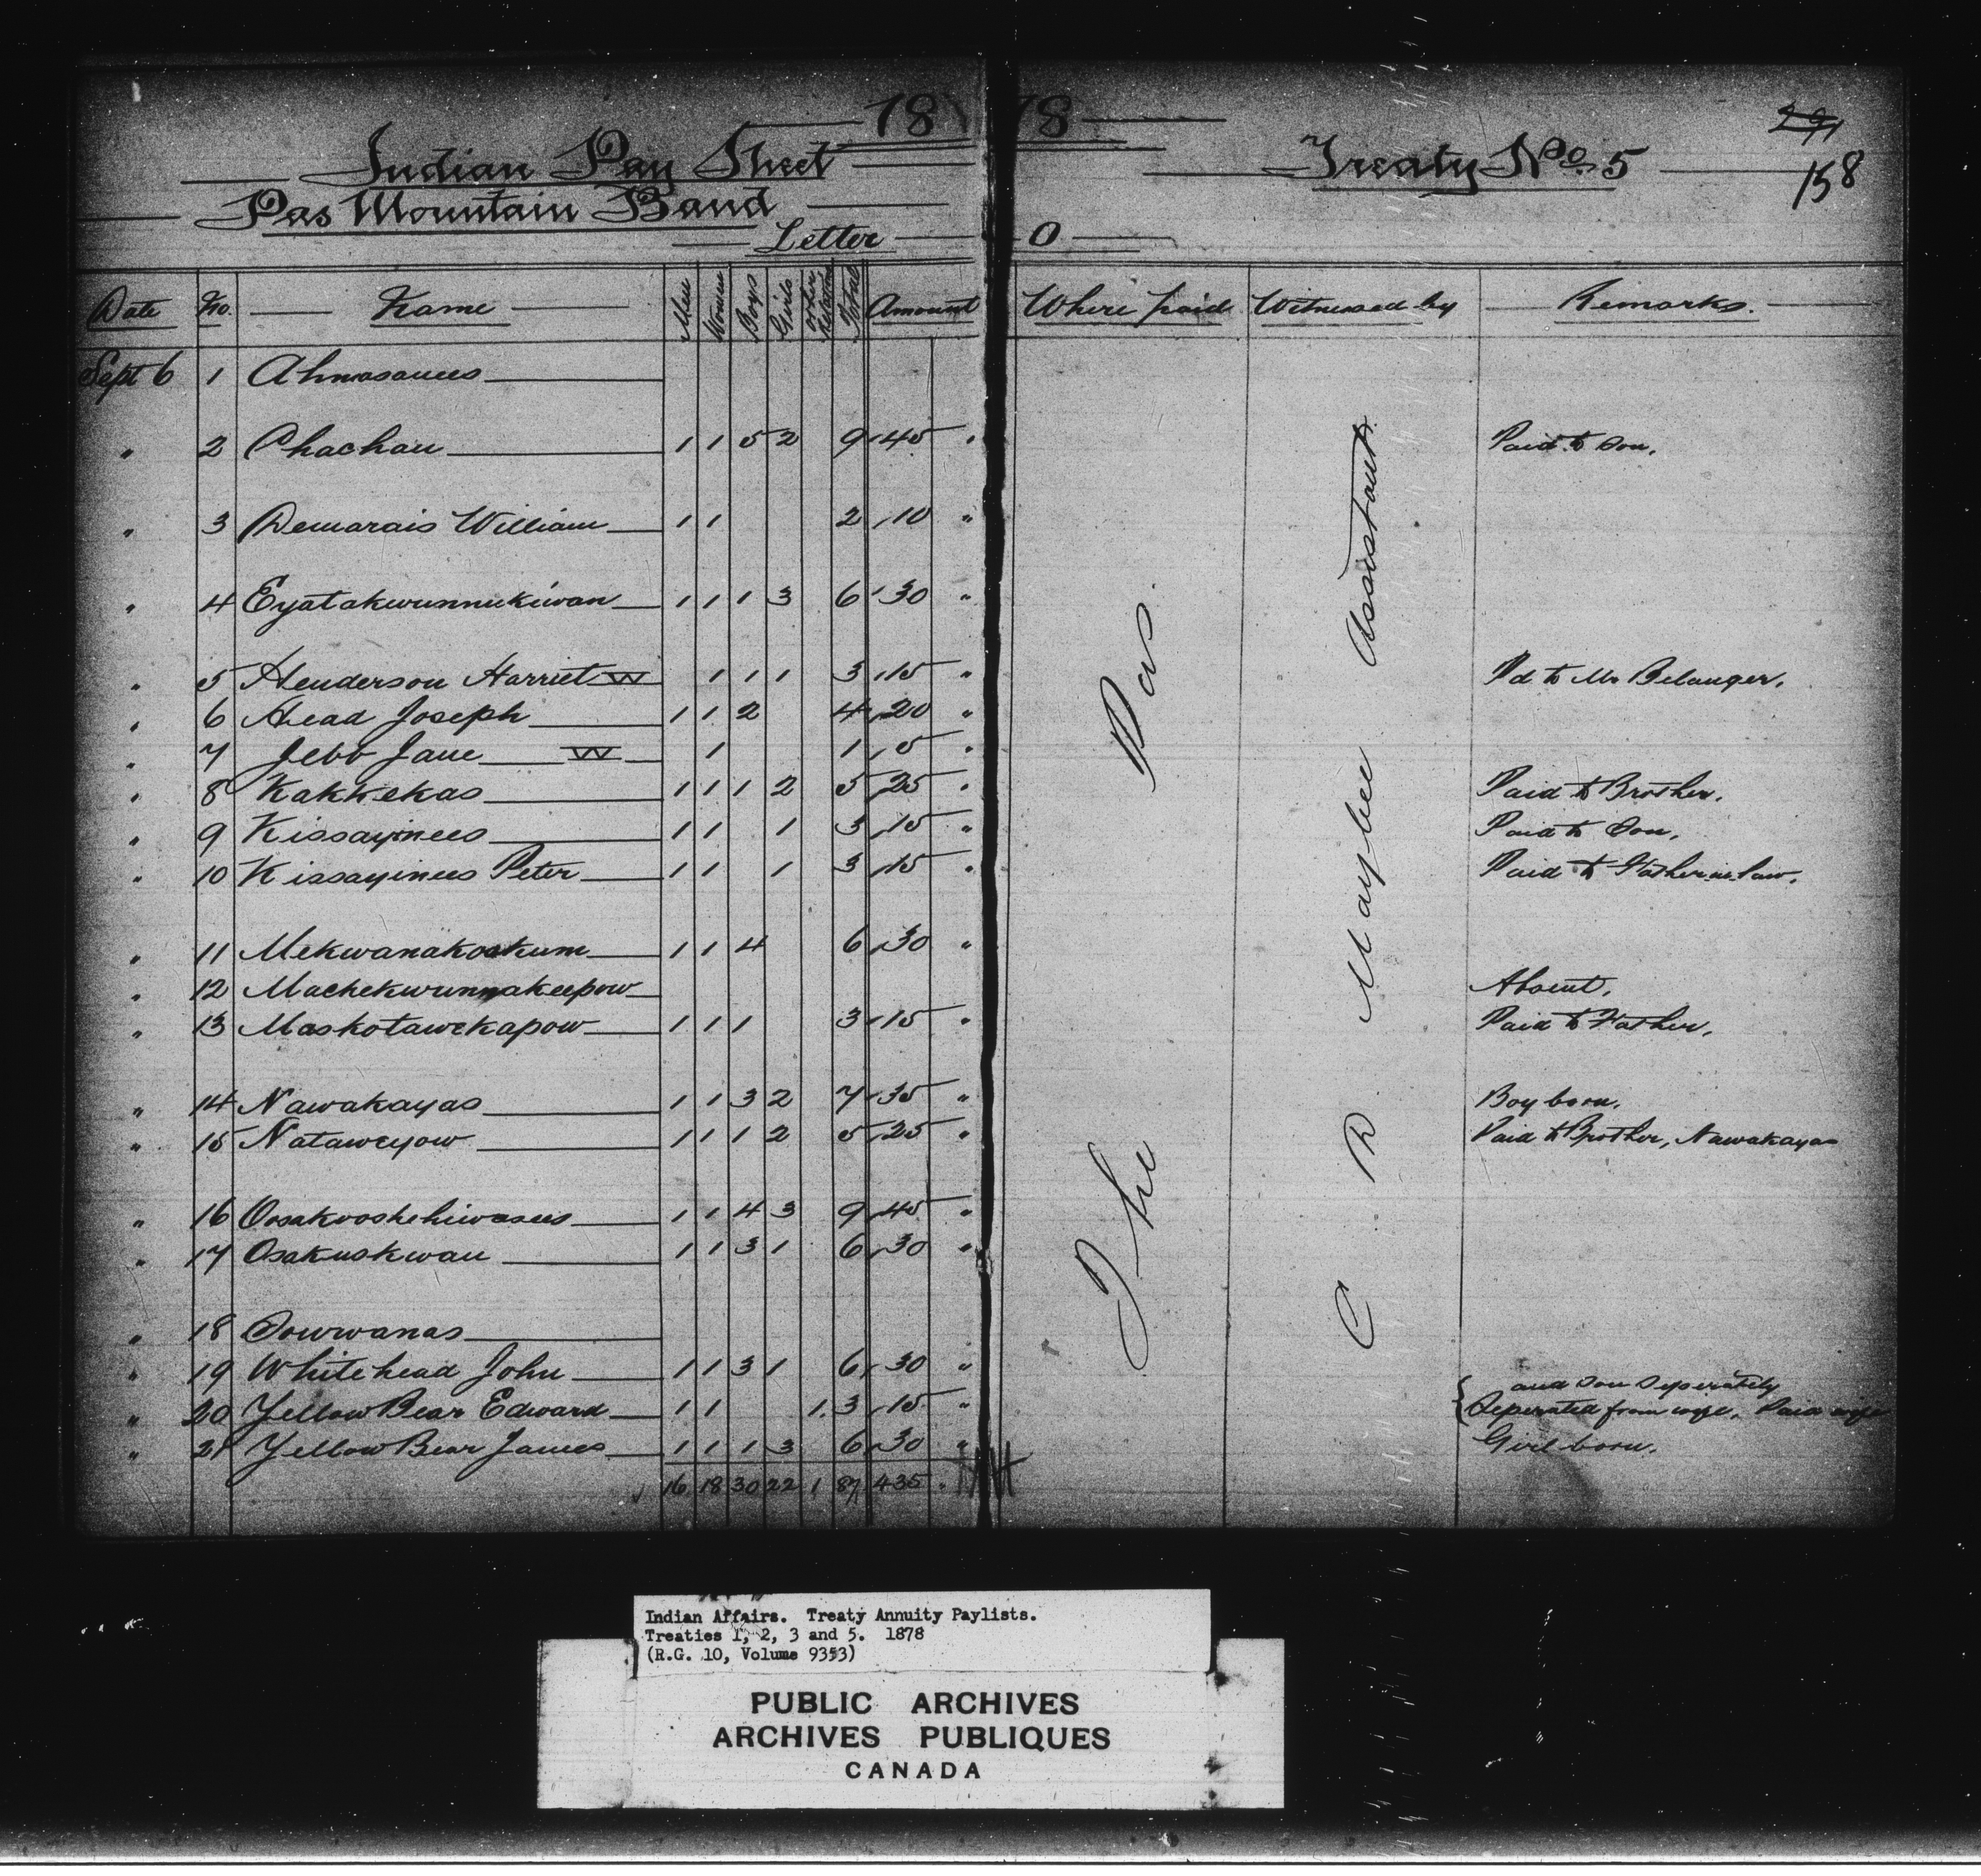 1878
Indian Pay Sheet Treaty No. 5
291
158
Pas Mountain Band
Letter O
Date No. Name Men Women Boys Girls Other Relations Total Amount Where paid Witnessed by Remarks.
Sept 6 1 Ahmasauees
" 2 Chachau 1 1 5 2 9 45 " Paid to Son.
" 3 Demarais William 1 1 2 10 "
" 4 Eyatakwunnukiwan 1 1 1 3 6 30 "
" 5 Henderson Harriet W 1 1 1 3 15 " Pd to Mr Belanger.
" 6 Head Joseph 1 1 2 4 20 "
" 7 Jebb Jane W 1 1 5 "
" 8 Kakkekas 1 1 1 2 5 25 " Paid to Brother.
" 9 Kissayinees 1 1 1 3 15 " Paid to Son.
" 10 Kissayinees Peter 1 1 1 3 15 " Paid to Father in law.
" 11 Mekwanakoskum 1 1 4 6 30 "
" 12 Machekwunnakeepow Absent.
" 13 Maskotawekapow 1 1 1 3 15 " Paid to Father.
" 14 Nawakayas 1 1 3 2 7 35 " Boy born.
" 15 Nataweyow 1 1 1 2 5 25 " Paid to Brother, Nawakayas
" 16 Oosakooshehiwasees 1 1 4 3 9 45 "
" 17 Osakuskwau 1 1 3 1 6 30 "
" 18 Sowwanas
" 19 Whitehead John 1 1 3 1 6 30 "
and Son Seperately
" 20 Yellow Bear Edward 1 1 1. 3 15 " Seperated from wife. Paid wife
" 21 Yellow Bear James 1 1 1 3 6 30 " Girl born.
16 18 30 22 1 87 435 "
The Pas.
C R Maybee Assistant
Indian Affairs. Treaty Annuity Paylists.
Treaties 1, 2, 3 and 5. 1878
(R.G. 10, Volume 9353)
PUBLIC ARCHIVES
ARCHIVES PUBLIQUES
CANADA